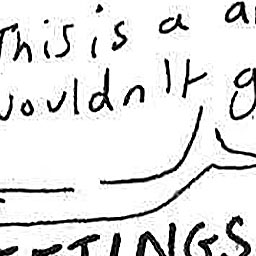 This is a a
wouldn't g
EETINGS